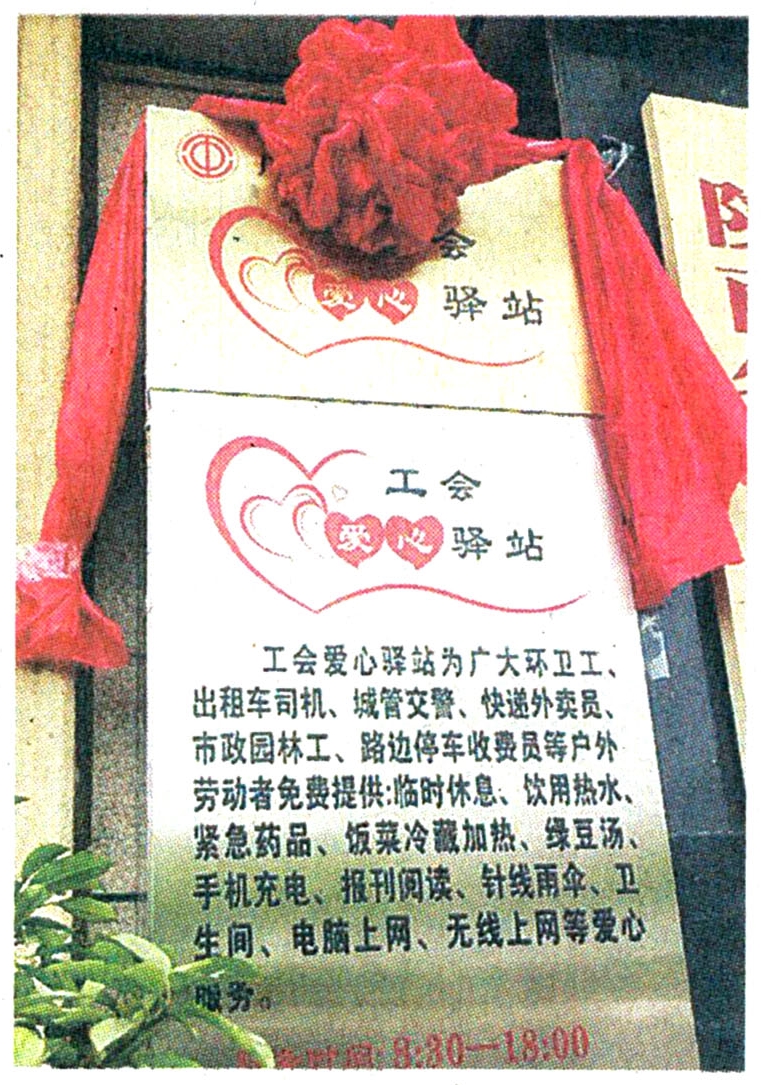 会
爱心 驿站
工会
爱心 驿站
工会爱心驿站为广大环卫工、
出租车司机、城管交警、快递外卖员、
市政园林工、路边停车收费员等户外
劳动者免费提供:临时休息、饮用热水、
紧急药品、饭菜冷藏加热、绿豆汤、
手机充电、报刊阅读、针线雨伞、卫
生间、电脑上网、无线上网等爱心
服务。
时间:8:30—18:00